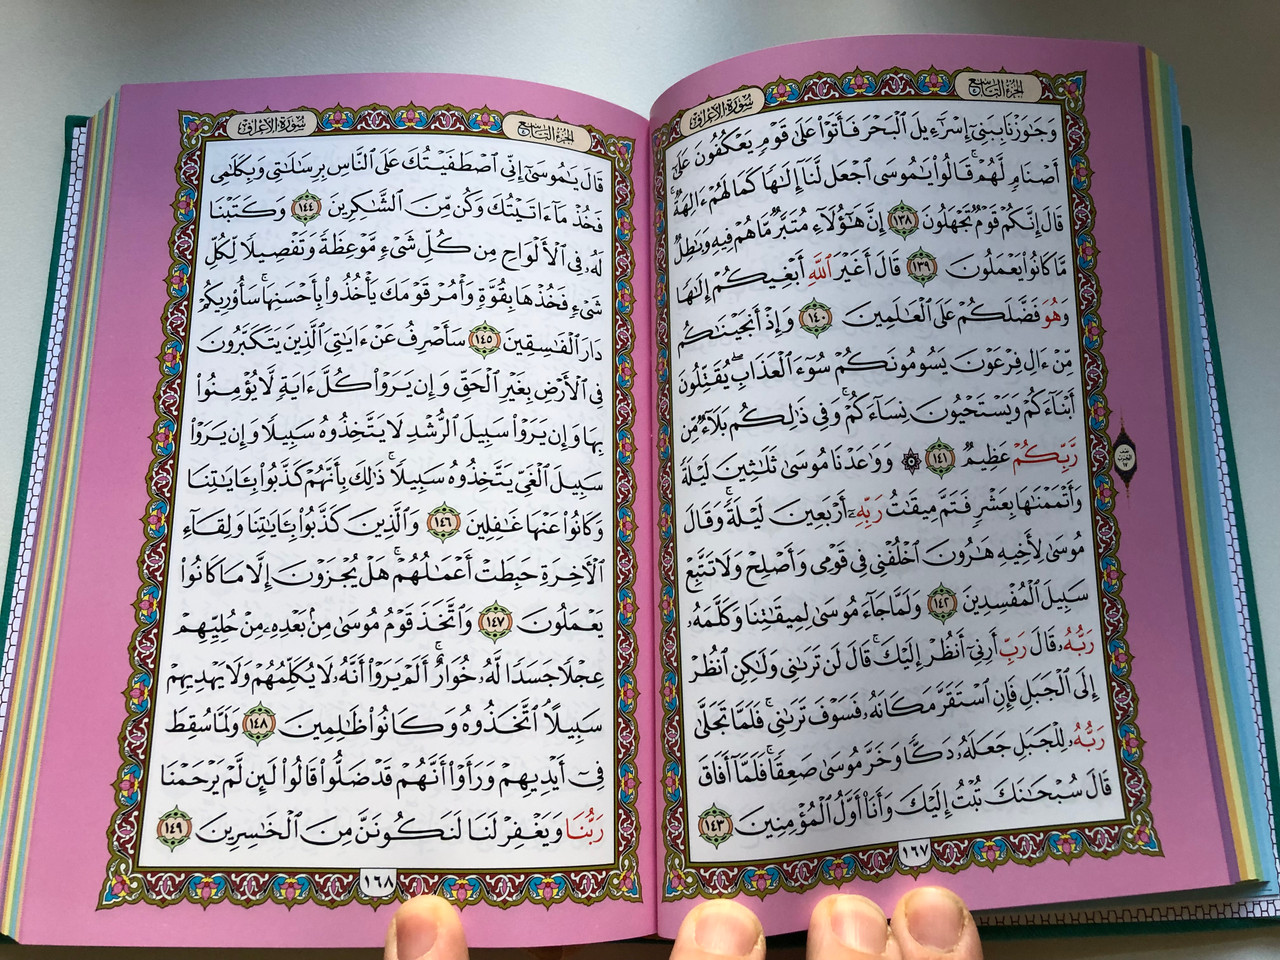 سُورَةُ الأَعْرَافِ
الجُزْءُ التَّاسِعُ
وَجَٰوَزْنَا بِبَنِىٓ إِسْرَٰٓءِيلَ ٱلْبَحْرَ فَأَتَوْا۟ عَلَىٰ قَوْمٍ يَعْكُفُونَ عَلَىٰٓ
أَصْنَامٍ لَّهُمْ ۚ قَالُوا۟ يَٰمُوسَى ٱجْعَل لَّنَآ إِلَٰهًا كَمَا لَهُمْ ءَالِهَةٌ ۚ
قَالَ إِنَّكُمْ قَوْمٌ تَجْهَلُونَ ١٣٨ إِنَّ هَٰٓؤُلَآءِ مُتَبَّرٌ مَّا هُمْ فِيهِ وَبَٰطِلٌ
مَّا كَانُوا۟ يَعْمَلُونَ ١٣٩ قَالَ أَغَيْرَ ٱللَّهِ أَبْغِيكُمْ إِلَٰهًا
وَهُوَ فَضَّلَكُمْ عَلَى ٱلْعَٰلَمِينَ ١٤٠ وَإِذْ أَنجَيْنَٰكُم
مِّنْ ءَالِ فِرْعَوْنَ يَسُومُونَكُمْ سُوٓءَ ٱلْعَذَابِ ۖ يُقَتِّلُونَ
أَبْنَآءَكُمْ وَيَسْتَحْيُونَ نِسَآءَكُمْ ۚ وَفِى ذَٰلِكُم بَلَآءٌ مِّن
رَّبِّكُمْ عَظِيمٌ ١٤١ ۞ وَوَٰعَدْنَا مُوسَىٰ ثَلَٰثِينَ لَيْلَةً
وَأَتْمَمْنَٰهَا بِعَشْرٍ فَتَمَّ مِيقَٰتُ رَبِّهِۦٓ أَرْبَعِينَ لَيْلَةً ۚ وَقَالَ
مُوسَىٰ لِأَخِيهِ هَٰرُونَ ٱخْلُفْنِى فِى قَوْمِى وَأَصْلِحْ وَلَا تَتَّبِعْ
سَبِيلَ ٱلْمُفْسِدِينَ ١٤٢ وَلَمَّا جَآءَ مُوسَىٰ لِمِيقَٰتِنَا وَكَلَّمَهُۥ
رَبُّهُۥ قَالَ رَبِّ أَرِنِىٓ أَنظُرْ إِلَيْكَ ۚ قَالَ لَن تَرَىٰنِى وَلَٰكِنِ ٱنظُرْ
إِلَى ٱلْجَبَلِ فَإِنِ ٱسْتَقَرَّ مَكَانَهُۥ فَسَوْفَ تَرَىٰنِى ۚ فَلَمَّا تَجَلَّىٰ
رَبُّهُۥ لِلْجَبَلِ جَعَلَهُۥ دَكًّا وَخَرَّ مُوسَىٰ صَعِقًا ۚ فَلَمَّآ أَفَاقَ
قَالَ سُبْحَٰنَكَ تُبْتُ إِلَيْكَ وَأَنَا۠ أَوَّلُ ٱلْمُؤْمِنِينَ ١٤٣
١٦٧
الجُزْءُ التَّاسِعُ
سُورَةُ الأَعْرَافِ
قَالَ يَٰمُوسَىٰٓ إِنِّى ٱصْطَفَيْتُكَ عَلَى ٱلنَّاسِ بِرِسَٰلَٰتِى وَبِكَلَٰمِى
فَخُذْ مَآ ءَاتَيْتُكَ وَكُن مِّنَ ٱلشَّٰكِرِينَ ١٤٤ وَكَتَبْنَا
لَهُۥ فِى ٱلْأَلْوَاحِ مِن كُلِّ شَىْءٍ مَّوْعِظَةً وَتَفْصِيلًا لِّكُلِّ
شَىْءٍ فَخُذْهَا بِقُوَّةٍ وَأْمُرْ قَوْمَكَ يَأْخُذُوا۟ بِأَحْسَنِهَا ۚ سَأُو۟رِيكُمْ
دَارَ ٱلْفَٰسِقِينَ ١٤٥ سَأَصْرِفُ عَنْ ءَايَٰتِىَ ٱلَّذِينَ يَتَكَبَّرُونَ
فِى ٱلْأَرْضِ بِغَيْرِ ٱلْحَقِّ وَإِن يَرَوْا۟ كُلَّ ءَايَةٍ لَّا يُؤْمِنُوا۟
بِهَا وَإِن يَرَوْا۟ سَبِيلَ ٱلرُّشْدِ لَا يَتَّخِذُوهُ سَبِيلًا وَإِن يَرَوْا۟
سَبِيلَ ٱلْغَىِّ يَتَّخِذُوهُ سَبِيلًا ۚ ذَٰلِكَ بِأَنَّهُمْ كَذَّبُوا۟ بِـَٔايَٰتِنَا
وَكَانُوا۟ عَنْهَا غَٰفِلِينَ ١٤٦ وَٱلَّذِينَ كَذَّبُوا۟ بِـَٔايَٰتِنَا وَلِقَآءِ
ٱلْءَاخِرَةِ حَبِطَتْ أَعْمَٰلُهُمْ ۚ هَلْ يُجْزَوْنَ إِلَّا مَا كَانُوا۟
يَعْمَلُونَ ١٤٧ وَٱتَّخَذَ قَوْمُ مُوسَىٰ مِنۢ بَعْدِهِۦ مِنْ حُلِيِّهِمْ
عِجْلًا جَسَدًا لَّهُۥ خُوَارٌ ۚ أَلَمْ يَرَوْا۟ أَنَّهُۥ لَا يُكَلِّمُهُمْ وَلَا يَهْدِيهِمْ
سَبِيلًا ۘ ٱتَّخَذُوهُ وَكَانُوا۟ ظَٰلِمِينَ ١٤٨ وَلَمَّا سُقِطَ
فِىٓ أَيْدِيهِمْ وَرَأَوْا۟ أَنَّهُمْ قَدْ ضَلُّوا۟ قَالُوا۟ لَئِن لَّمْ يَرْحَمْنَا
رَبُّنَا وَيَغْفِرْ لَنَا لَنَكُونَنَّ مِنَ ٱلْخَٰسِرِينَ ١٤٩
١٦٨